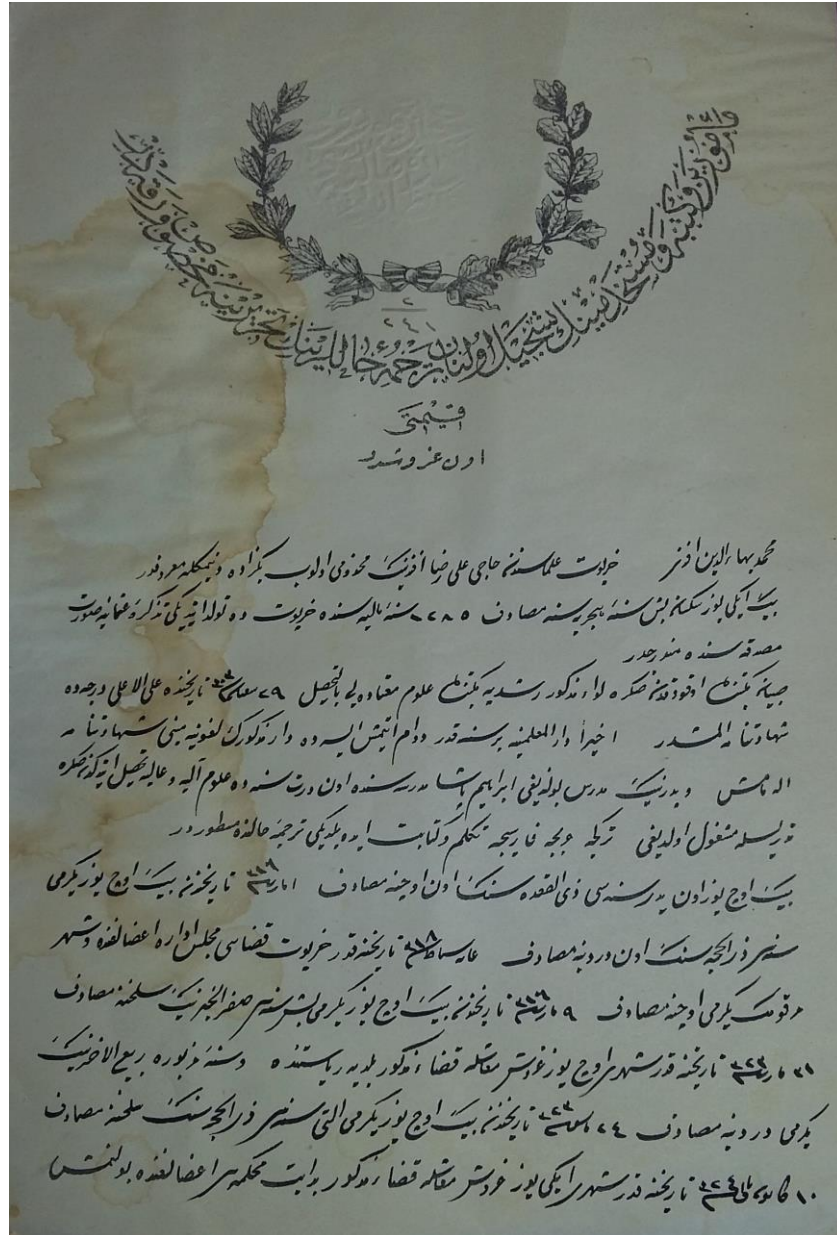 مأمورين و ككتبه و مستخدميننك تسجيل اولنان ترجمهٔ حاللرينك تحريرينه مخصوص ورقه در
٢
٢٤١
قيمتى
اون غروشدر
محمد بهاءالدين افندى خربوت علماسندن حاجى على رضا افندينك مخدومى اولوب بكزاده ديمكله معروفدر
بيك ايكى يوز سكسان بش سنهٔ هجريه سنه مصادف ١٢٨٥ سنهٔ ماليه سنده خربوت ده تولد ايتديكى تذكرهٔ عثمانيه صورت
مصدقه سنده مندرجدر
صبيان مكتبنده اوقودقدن صكره لواء مذكور رشديه مكتبنده علوم معتاده يى بالتحصيل ٢٩ تاريخنده على الاعلى درجه ده
شهادتنامه المشدر اخيراً دارالمعلمينه بر سنه قدر دوام ايتمش ايسه ده دار مذكورك لغويه مبنى شهادتنامه
اله مامش و پدرينك مدرس بولنديغى ابراهيم پاشا مدرسه سنده اون درت سنه ده علوم آليه و عاليه تحصيل ايتدكدن صكره
تدريسله مشغول اولديغى تركجه عربجه فارسيجه تكلم و كتابت ايده بيلديكى ترجمهٔ حالنده مسطوردر
بيك اوچ يوز اون يدى سنه سى ذى القعده سنك اون اوچنه مصادف تاريخندن بيك اوچ يوز يكرمى
سنه سى ذى الحجه سنك اون دردينه مصادف تاريخنه قدر خربوت قضاسى مجلس اداره اعضالغنده و شهر
مرقومك يكرمى اوچنه مصادف ٩ تاريخندن بيك اوچ يوز يكرمى بش سنه سى صفرالخيرينك سلخنه مصادف
٣١ تاريخنه قدر شهرى اوچ يوز غروش معاشله قضاء مذكور بلديه رياستنده و سنهٔ مزبوره ربيع الاخرينك
يكرمى دردينه مصادف ٢٤ تاريخندن بيك اوچ يوز يكرمى التى سنه سى ذى الحجه سنك سلخنه مصادف
١٠ تاريخنه قدر شهرى ايكى يوز غروش معاشله قضاء مذكور بدايت محكمه سى اعضالغنده بولنمش